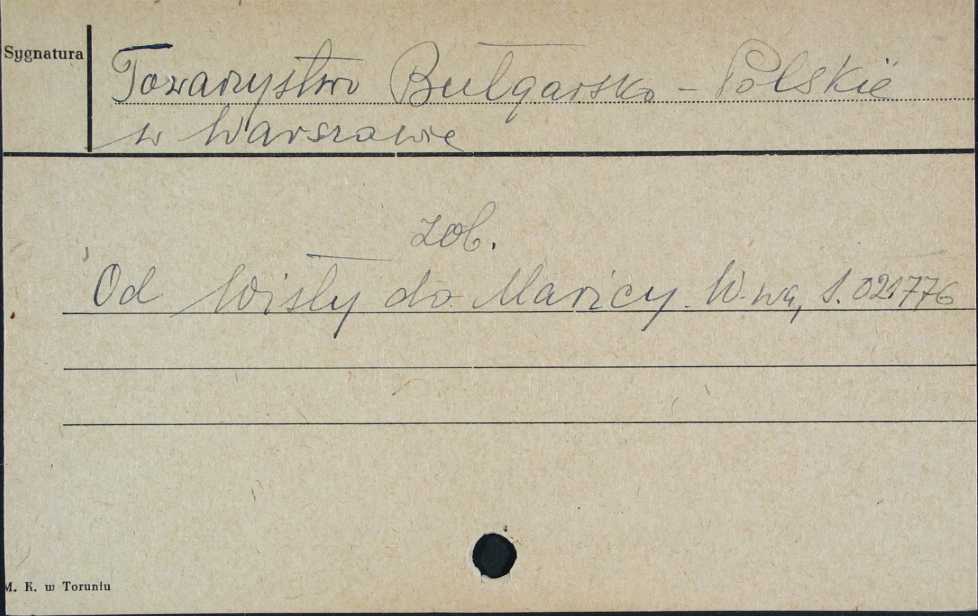 Sygnatura
Towarzystwo Bułgarsko - Polskie
w Warszawie
zob.
Od Wisły do Maricy. W-wa, S. 021776
M. K. w Toruniu